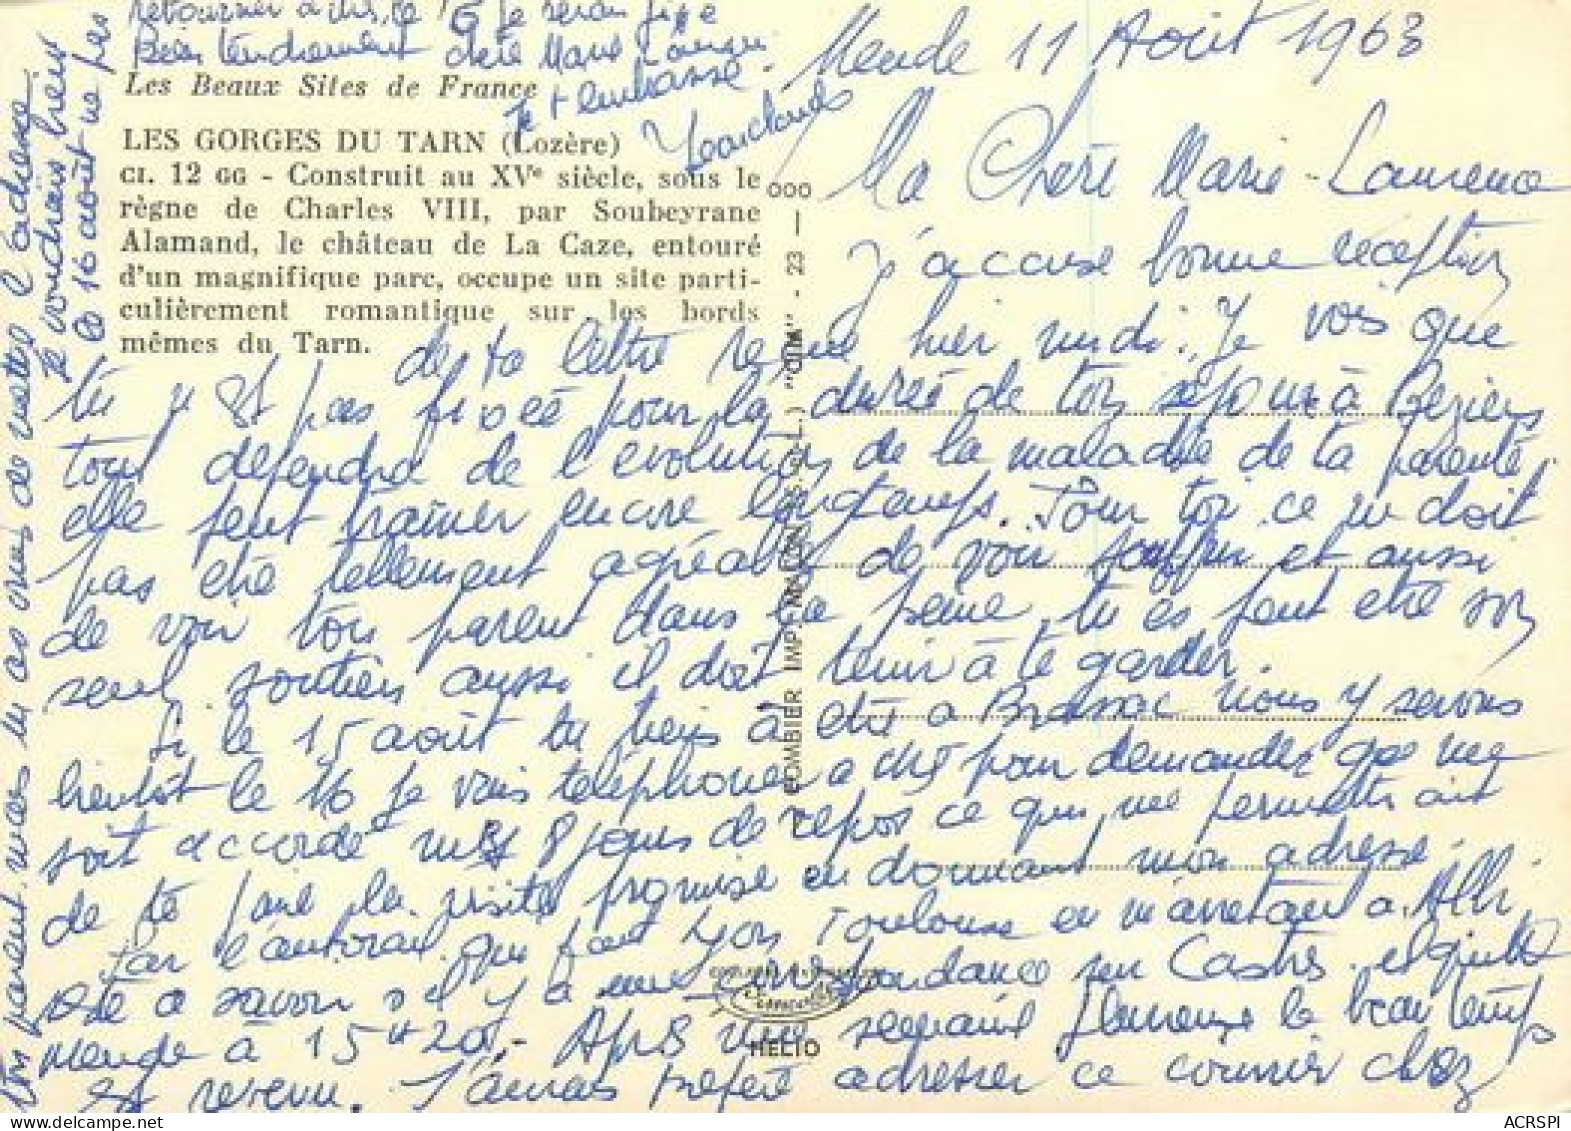 Mende 11 Août 1963
Ma Chère Marie-Laurence
J'accuse bonne réception
de ta lettre reçue hier midi. Je vois que
tu n'est pas fixée pour la durée de ton séjour à Béziers
tout dependra de l'evolution de la maladie de ta parente,
elle peut trainer encore longtemps. Pour toi ce ne doit
pas etre tellement agréable de voir souffrir et aussi
de voir ton parent dans la peine, tu es peut etre son
seul soutien aussi il doit tenir à te garder.
Si le 15 août tu viens à etre a Brassac nous y serons
bientôt le 16 je vais téléphoner a pour demander que me
soit accordé 8 jours de repos ce qui me permettrait
de te faire la visite promise en donnant mon adresse.
Par l'autorail que fait Lyon Toulouse en m'arretant a Albi.
reste a savoir s'il y a une correspondance sur Castres. et quitte
mende à 15 H 20.- Après une semaine pluvieuse le beau temps
est revenu. J'aurais préféré adresser ce courrier chez
ton parent mais tu as omis de mettre l'adresse
Je voudrais bien
le 16 août ne pas
retourner a ce 16 je serai fixé
Bien tendrement chère Marie Laurence.
Je t'embrasse
Jean Claude
Les Beaux Sites de France
LES GORGES DU TARN (Lozère)
CI. 12 GG - Construit au XVe siècle, sous le
règne de Charles VIII, par Soubeyrane
Alamand, le château de La Caze, entouré
d'un magnifique parc, occupe un site parti-
culièrement romantique sur les bords
mêmes du Tarn.
COMBIER IMP. MACON (S.-&-L.) "CIM" - 23 — 000
HELIO
ACRSPI